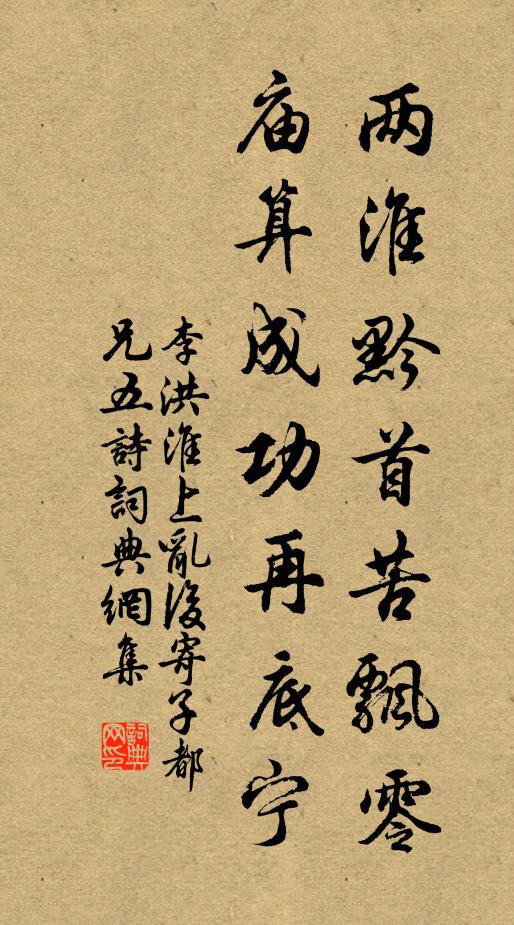 两淮黔首苦飘零
庙算成功再底宁
李洪淮上亂後寄子都
兄五詩詞典網集
詞典
网印